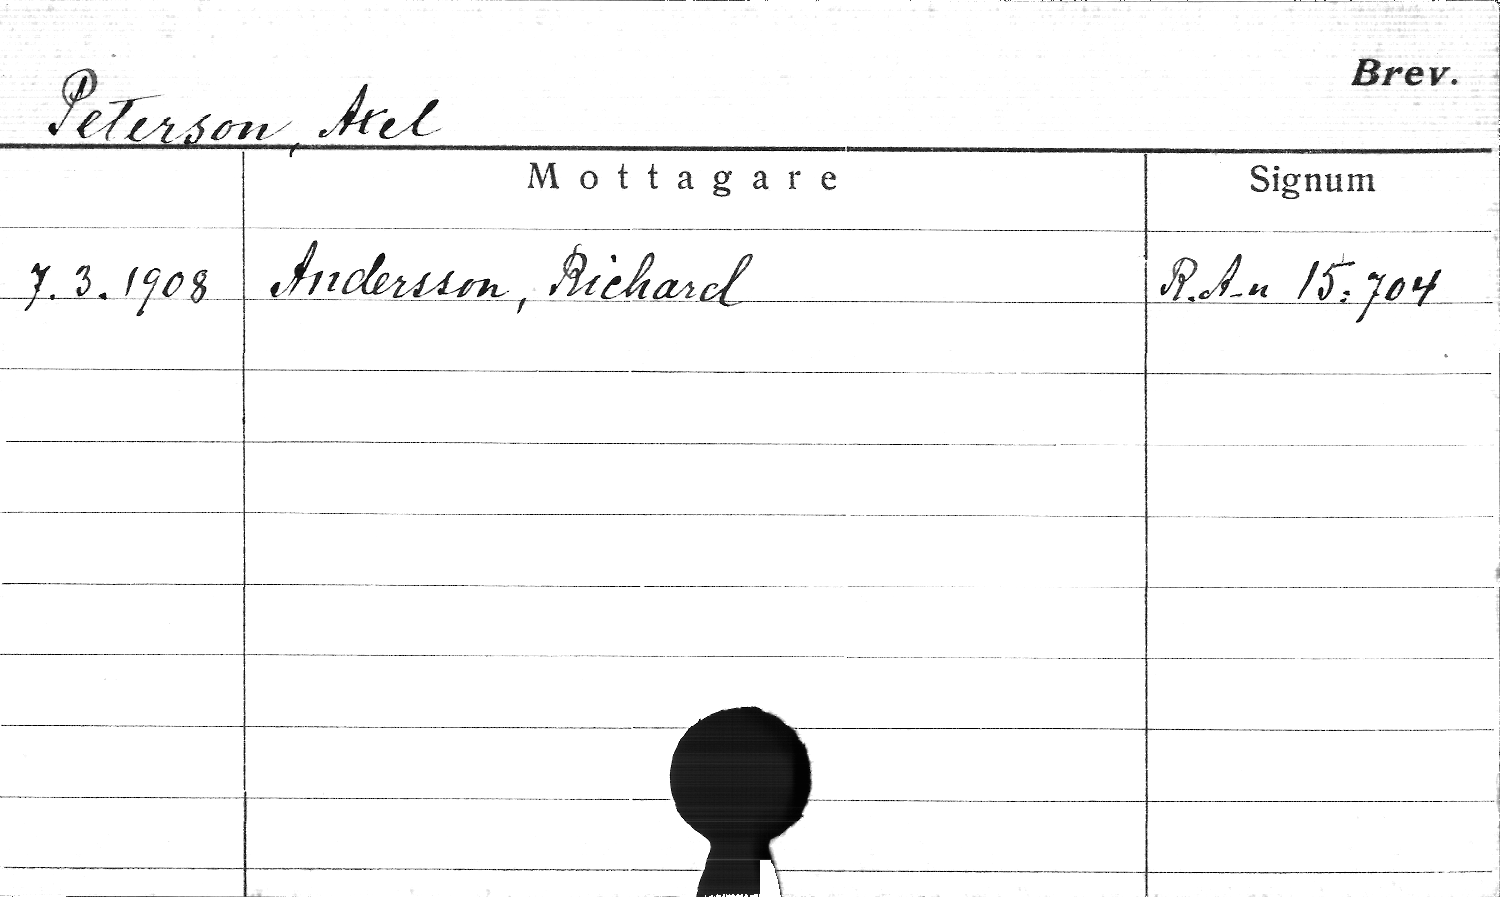 Brev.
Peterson, Axel
Mottagare Signum
7.3.1908 Andersson, Richard R.A-n 15:704